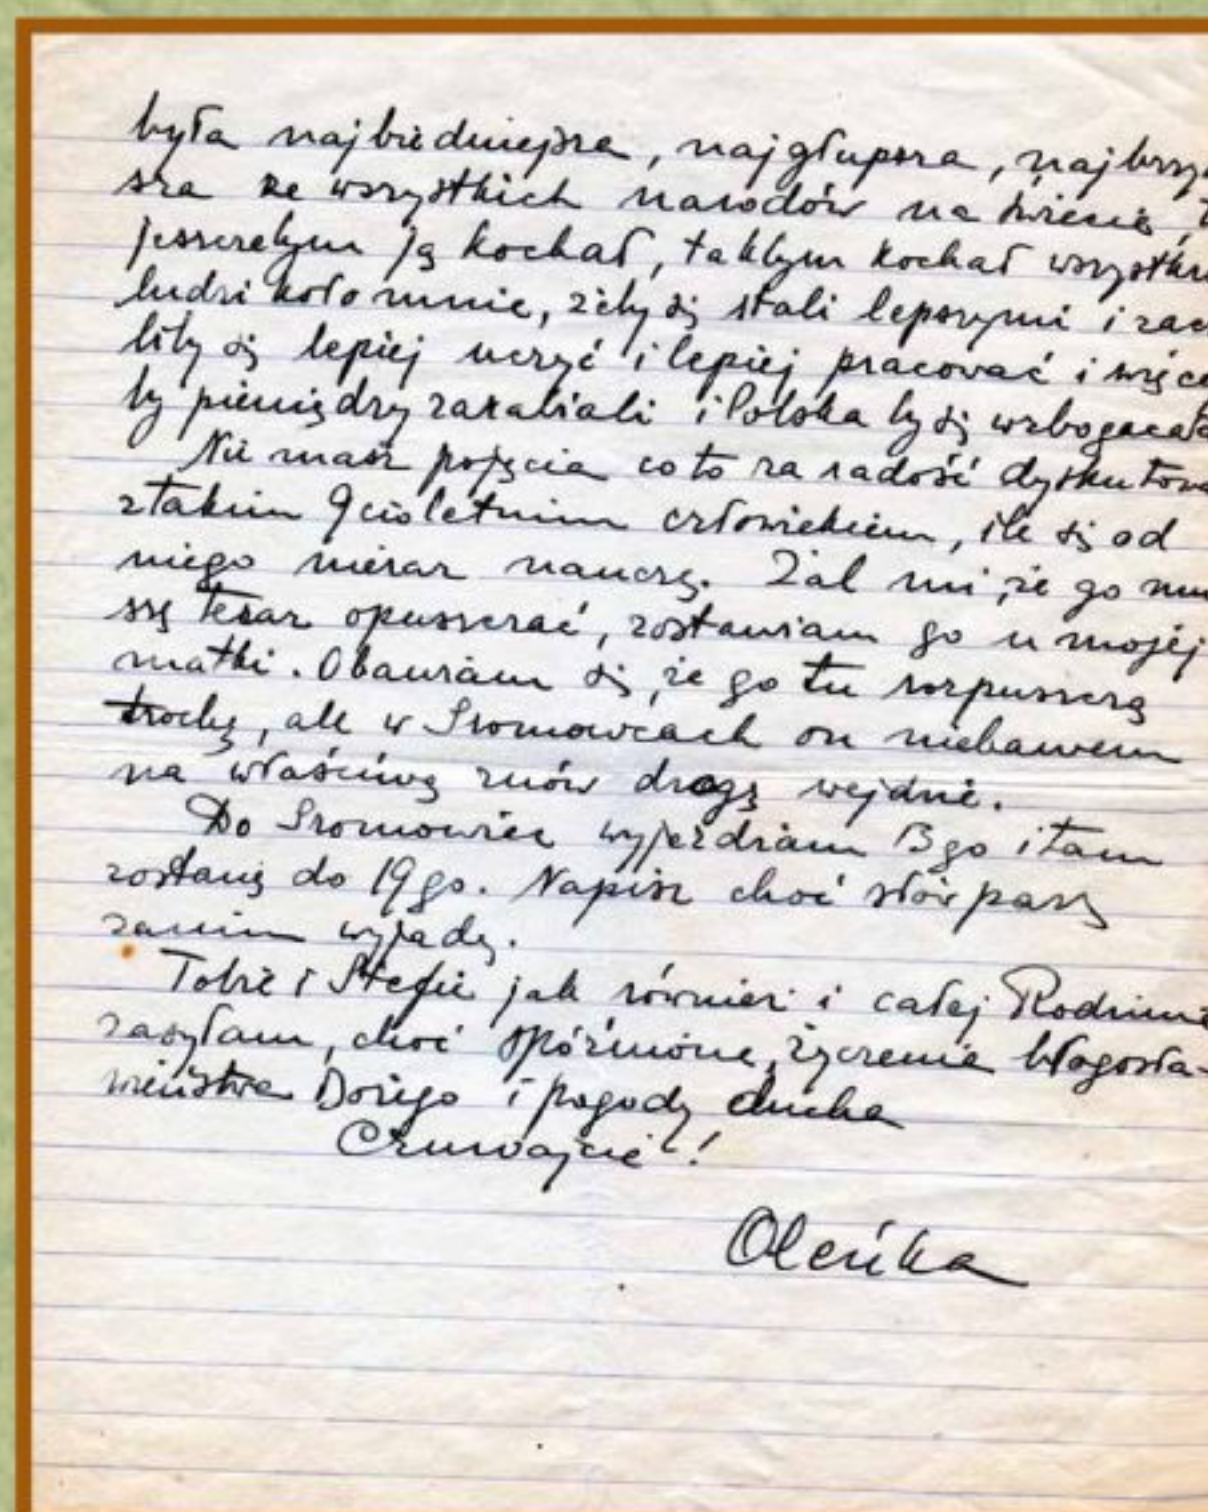 była najbiedniejsza, najgłupsza, najbrzy
sza ze wszystkich narodów na świecie,
jeszczebym ją kochał, takbym kochał wszystki
ludzi koło mnie, żeby się stali lepszymi i zac
liby się lepiej uczyć i lepiej pracować i więce
by pieniędzy zarabiali i Polska by się wzbogacała
Nie masz pojęcia co to za radość dyskutowa
z takim 9cioletnim człowiekiem, ile się od
niego nieraz nauczę. Żal mi, że go mu
szę teraz opuszczać, zostawiam go u mojej
matki. Obawiam się, że go tu rozpuszczą
trochę, ale w Sromowcach on niebawem
na właściwą znów drogę wejdzie.
Do Sromowiec wyjeżdżam 13go i tam
zostanę do 19go. Napisz choć słów parę
zanim wyjadę.
Tobie i Stefie jak również i całej Rodzinie
zasyłam, choć spóźnione, życzenia błogosła-
wieństwa Bożego i pogody ducha
Czuwajcie!
Oleńka